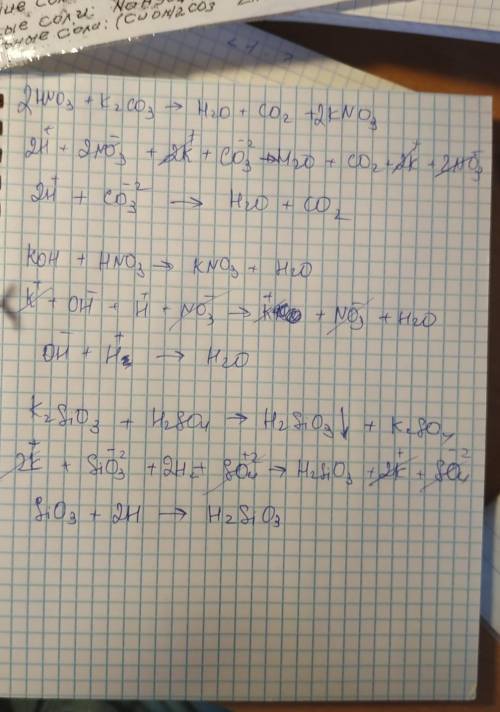 ные соли: (CuOH)2CO3
2HNO3 + K2CO3 → H2O + CO2 + 2KNO3
2H⁺ + 2NO3⁻ + 2K⁺ + CO3⁻² → H2O + CO2 + 2K⁺ + 2NO3⁻
2H⁺ + CO3⁻² → H2O + CO2
KOH + HNO3 → KNO3 + H2O
K⁺ + OH⁻ + H⁺ + NO3⁻ → K⁺ + NO3⁻ + H2O
OH⁻ + H⁺ → H2O
K2SiO3 + H2SO4 → H2SiO3↓ + K2SO4
2K⁺ + SiO3⁻² + 2H + SO4⁺² → H2SiO3 + 2K⁺ + SO4⁻²
SiO3 + 2H → H2SiO3